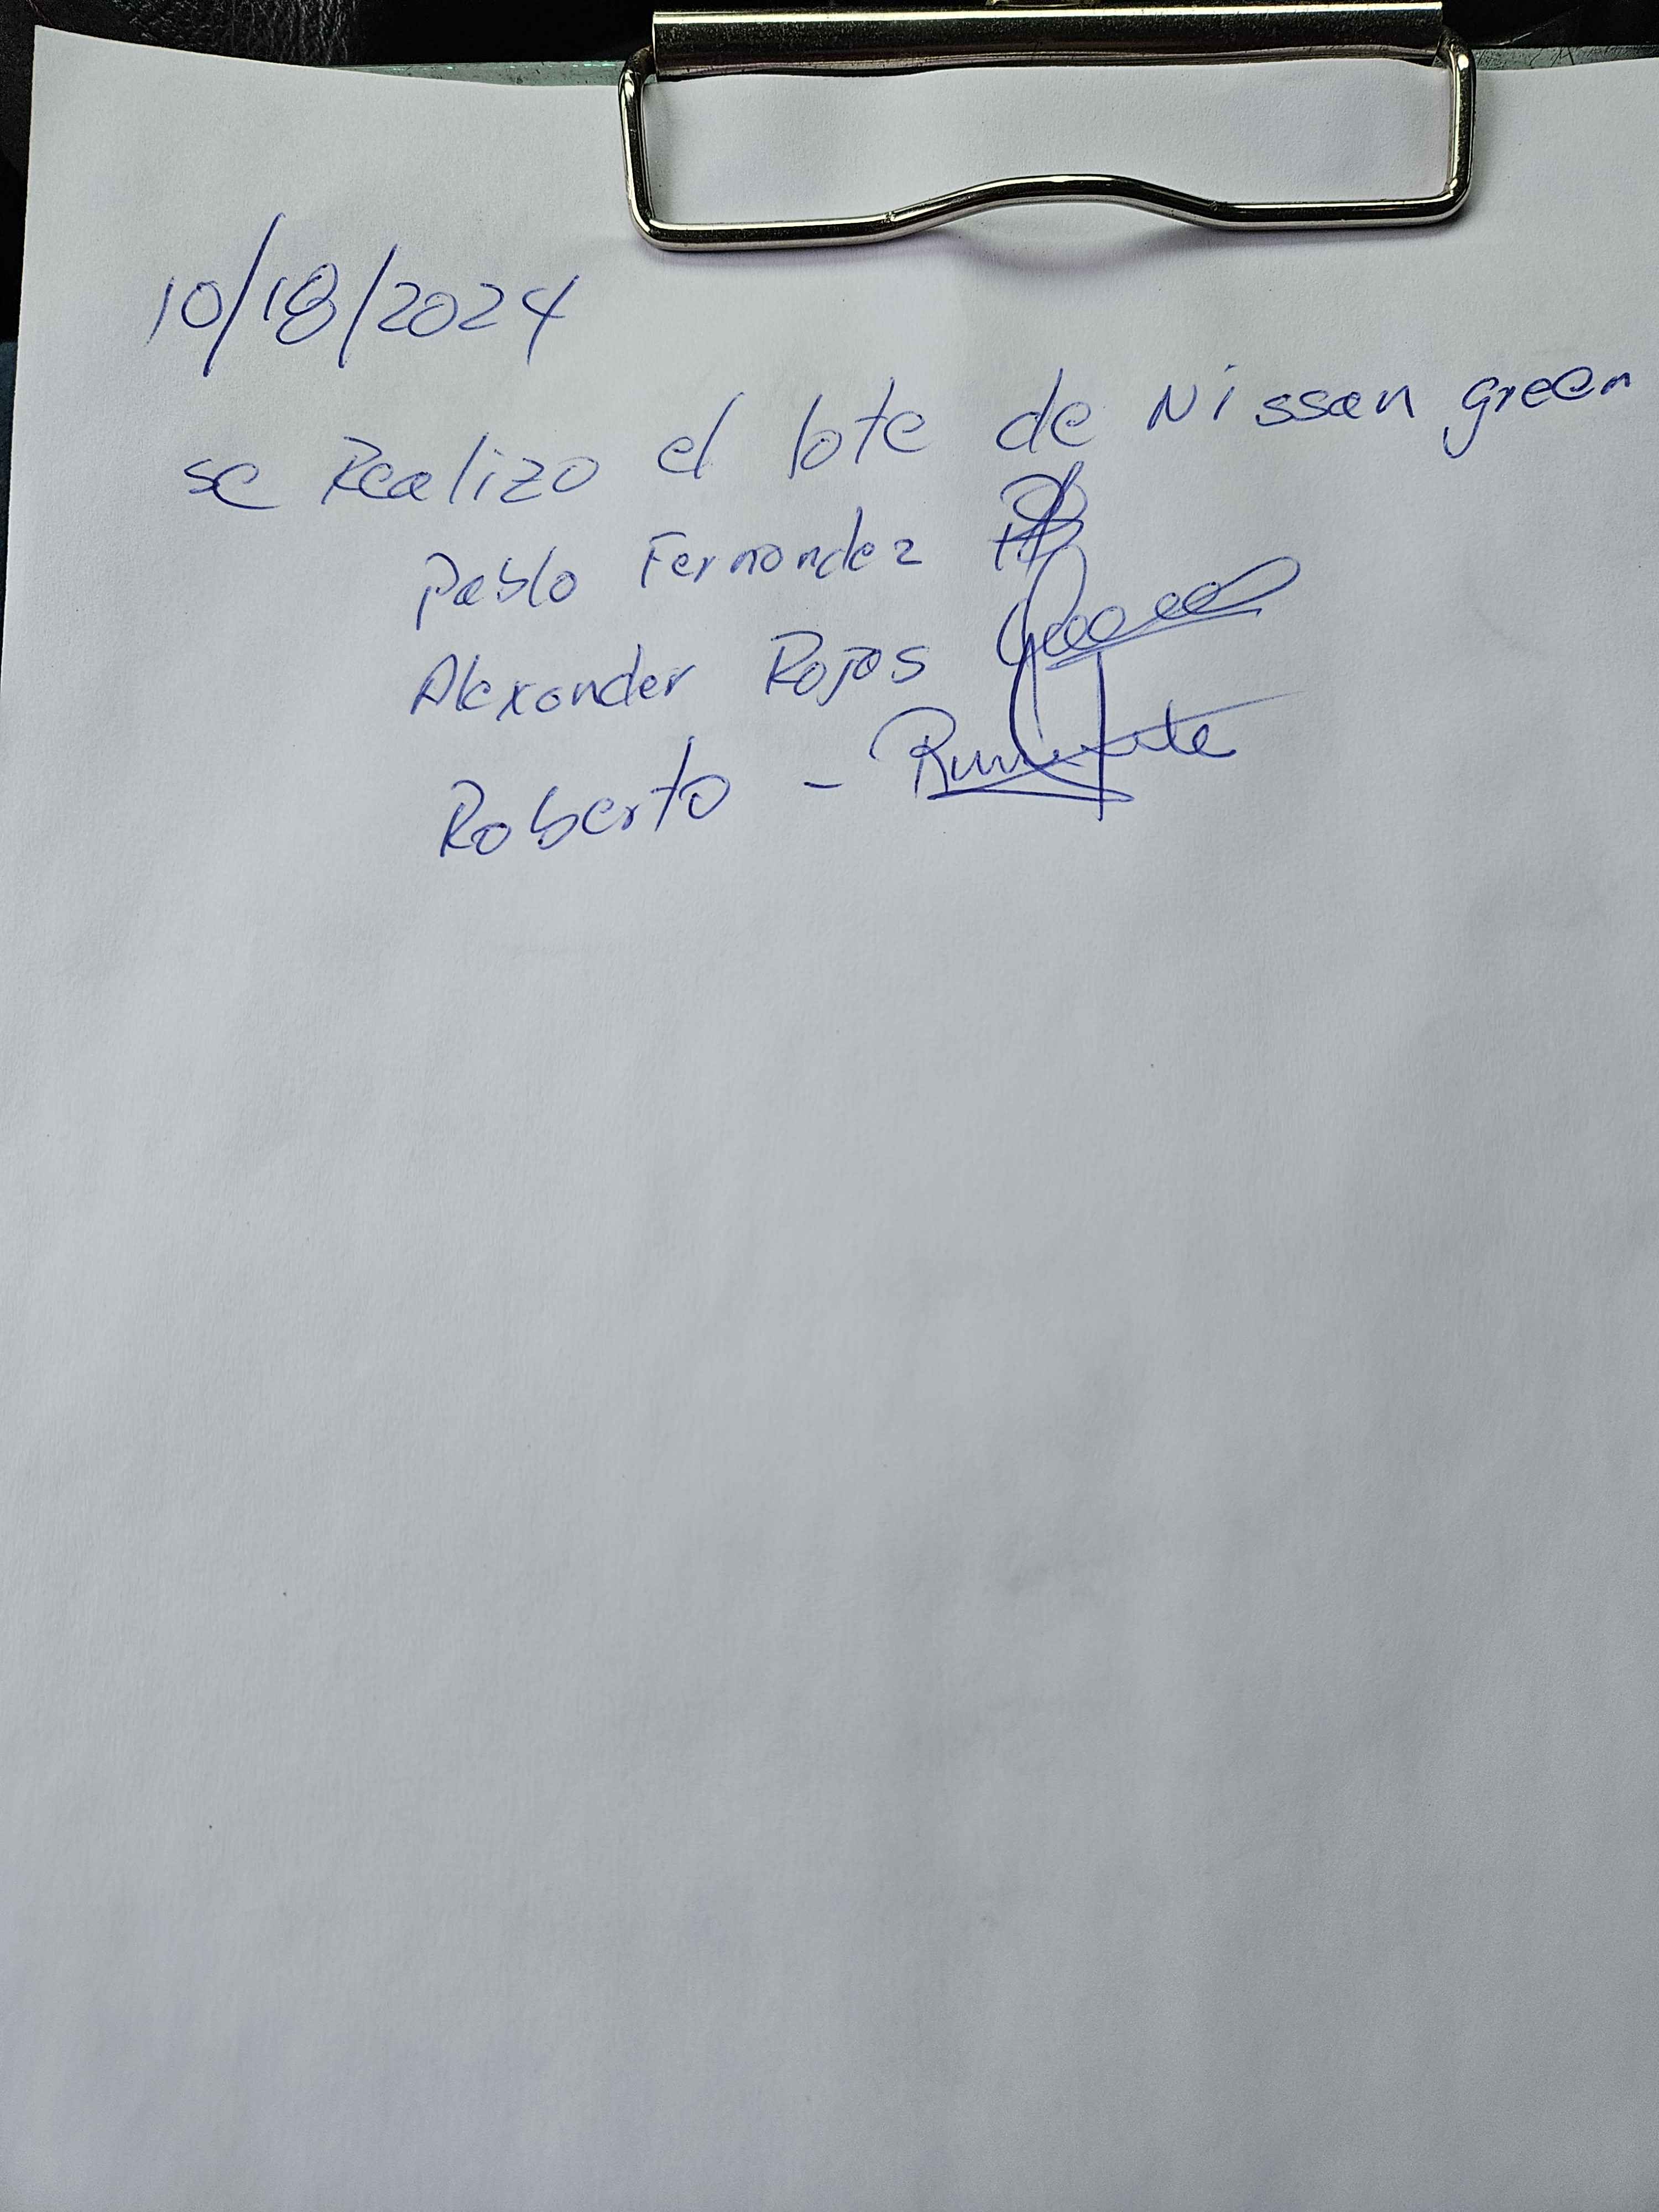 10/18/2024
se Realizo el lote de Nissan green
Pablo Fernandez
Alexander Rojas
Roberto -